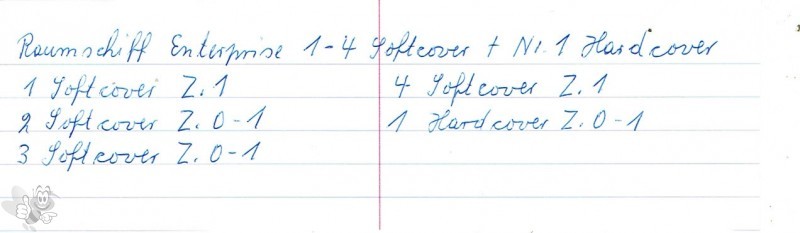 Raumschiff Enterprise 1-4 Softcover + Nr. 1 Hardcover
1 Softcover Z. 1
2 Softcover Z. 0-1
3 Softcover Z. 0-1
4 Softcover Z. 1
1 Hardcover Z. 0-1